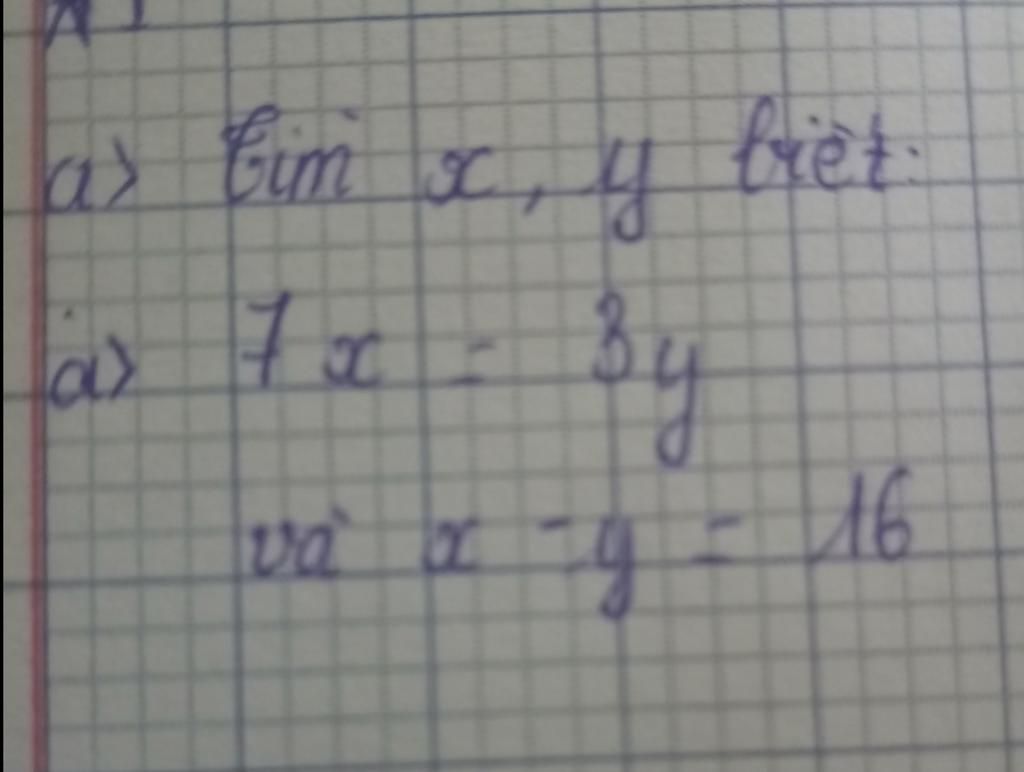 a) tìm x, y biết:
a) 7x = 3y
và x - y = 16